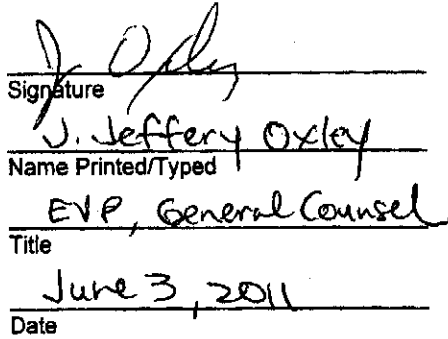 J. Oxley
Signature
J. Jeffery Oxley
Name Printed/Typed
EVP, General Counsel
Title
June 3, 2011
Date